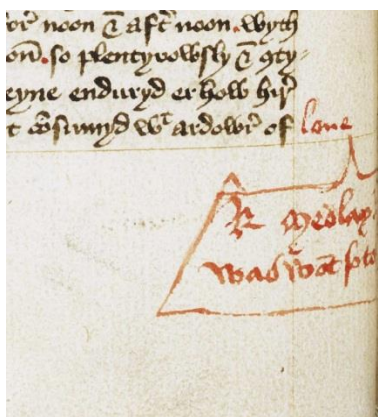 for noon & aft noon. wyth
on. so plentyuowsly & ꝯty-
eyne enduryd er how hir
t cōsumyd wᵗ ardowr of loue
R Medlay
was wōt so to